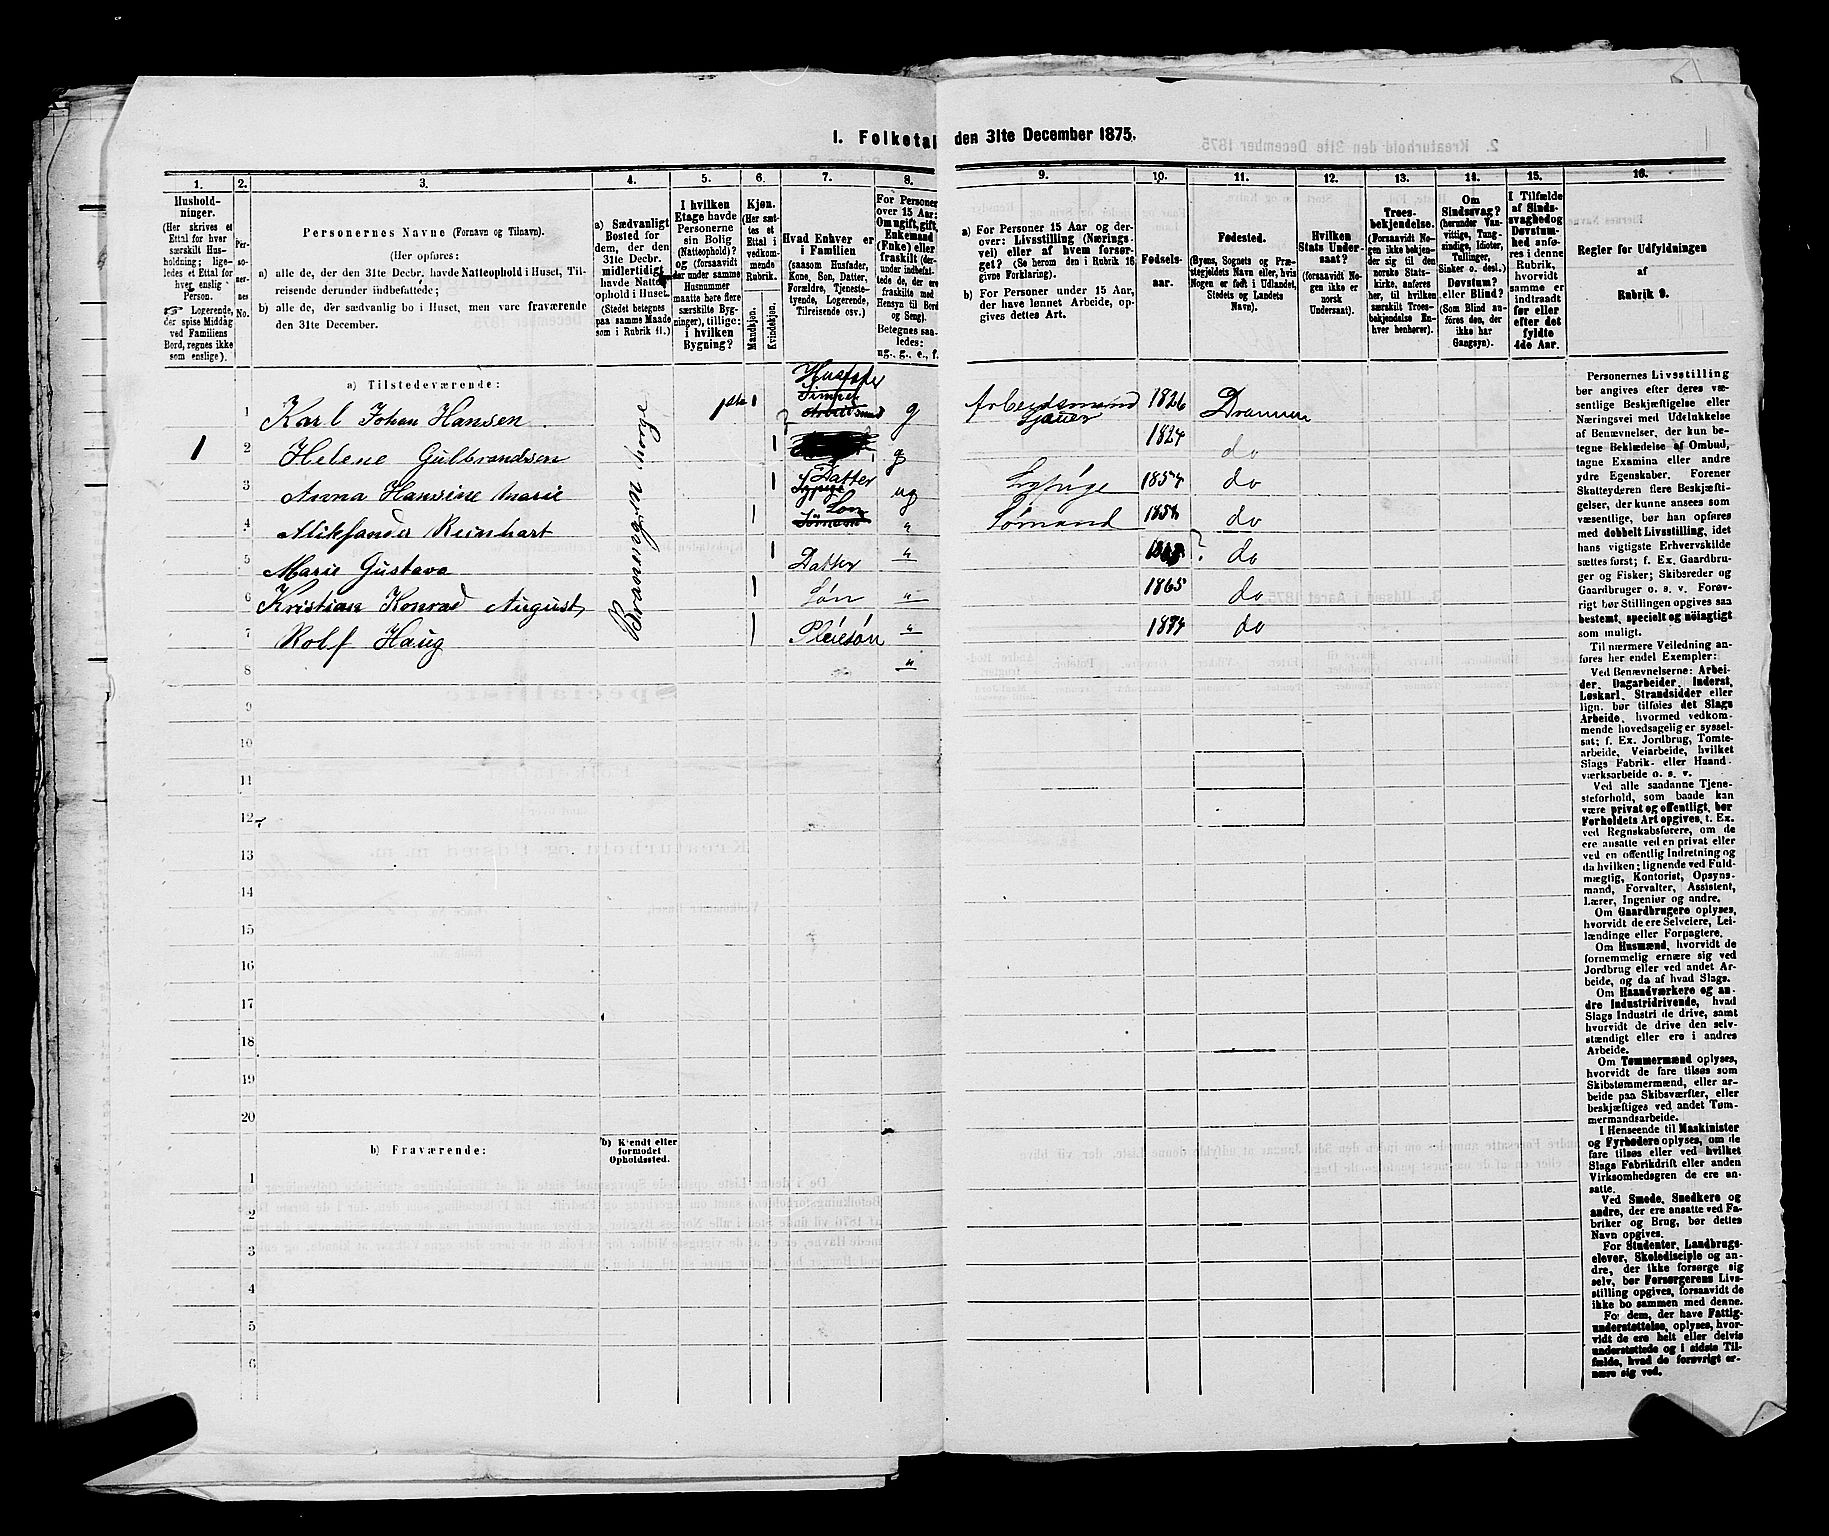 1. Folketal den 31te December 1875.
1.
2.
3.
4.
5.
6.
7.
8.
9.
10.
11.
12.
13.
14.
15.
16.
Hushold-
ninger.
(Her skrives et
Ettal for hver
særskilt Hus-
holdning; lige-
ledes et Ettal for
hver enslig
Person.
Logerende,
der spise Middag
ved Familiens
Bord, regnes ikke
som enslige).
Per-
so-
ner-
nes
No.
Personernes Navne (Fornavn og Tilnavn).
(Her opføres:
a) alle de, der den 31te Decbr. havde Natteophold i Huset, Til-
reisende derunder indbefattede;
b) alle de, der sædvanlig bo i Huset, men vare fraværende
den 31te December.
a) Sædvanligt
Bosted for
dem, der den
31te Decbr.
midlertidig
havde Natte-
ophold i Huset.
(Stedet betegnes
paa samme Maade
som i Rubrik 11.)
I hvilken
Etage havde
Personerne
sin Bolig
(Natteophold)?
og (forsaavidt
der under samme
Husnummer
maatte høre flere
særskilte Byg-
ninger), tillige:
i hvilken
Bygning?
Kjøn.
(Her sæt-
tes et
Ettal i
vedkom-
mende
Rubrik.
Mandkjøn.
Kvindekjøn.
Hvad Enhver er
i Familien
(saasom Husfader,
Kone, Søn, Datter,
Forældre, Tjeneste-
tyende, Logerende,
Tilreisende osv.)
For Personer
over 15 Aar:
Om ugift, gift,
Enkemand
(Enke) eller
fraskilt (der-
under indbefat-
tede de, der ere
fraskilte med
Hensyn til Bord
og Seng).
Betegnes saa-
ledes:
ug., g., e., f.
a) For Personer 15 Aar og der-
over: Livsstilling (Nærings-
vei) eller af hvem forsør-
get? (Se herom den i Rubrik 16
givne Forklaring).
b) For Personer under 15 Aar,
der have lønnet Arbeide, op-
gives dettes Art.
Fødsels-
aar.
Fødested.
(Byens, Sognets og Præ-
stegjeldets Navn eller, hvis
Nogen er født i Udlandet,
Stedets og Landets
Navn).
Hvilken
Stats Under-
saat?
(forsaavidt No-
gen ikke er
norsk
Undersaat).
Troes-
bekjendelse.
(Forsaavidt No-
gen ikke bekjen-
der sig til den
norske Stats-
kirke, anføres
her, til hvilken
særskilt Troes-
bekjendelse En-
hver henhører).
Om
Sindssvag?
(herunder Van-
vittige, Tung-
sindige, Idioter,
Tullinger,
Sinker o. desl.)
Døvstum?
eller Blind?
(Som Blind an-
føres den, der
ikke har
Gangsyn).
I Tilfælde
af Sinds-
svaghed og
Døvstum-
hed anfø-
res i denne
Rubrik,
hvorvidt
samme er
indtraadt
før eller
efter det
fyldte
4de Aar.
Regler for Udfyldningen
af
Rubrik 9.
a) Tilstedeværende:
1 Karl Johan Hansen 1ste 1 Husfader g Arbeidsmand Sjauer 1826 Drammen
1 2 Helene Gulbrandsen 1 g 1824 do
3 Anna Hansine Marie 1 Datter ug Sypige 1854 do
4 Aliksander Reinhart 1 Søn " Sømand 1858 do
5 Marie Gustava 1 Datter " ? do
6 Kristian Konrad August 1 Søn " 1865 do
7 Rolf Haug 1 Pleiesøn " 1874 do
8 "
9
10
11
12
13
14
15
16
17
18
19
20
b) Fraværende:
b) Kjendt eller
formodet
Opholdssted.
1
2
3
4
5
6
Personernes Livsstilling
bør angives efter deres væ-
sentlige Beskjæftigelse eller
Næringsvei med Udelukkelse
af Benævnelser, der kun be-
tegne Beklædelse af Ombud,
tagne Examina eller andre
ydre Egenskaber. Forener
Skatteyderen flere Beskjæf-
tigelser, der kunne ansees som
væsentlige, bør han opføres
med dobbelt Livsstilling, idet
hans vigtigste Erhvervskilde
sættes først; f. Ex. Gaardbru-
ger og Fisker; Skibsreder og
Gaardbruger o. s. v. Forøv-
rigt bør Stillingen opgives saa
bestemt, specielt og nøiagtigt
som muligt.
Til nærmere Veiledning an-
føres her endel Exempler:
Ved Benævnelserne: Arbei-
der, Dagarbeider, Inderst,
Løskarl, Strandsidder eller
lign. bør tilføies det Slags
Arbeide, hvormed vedkom-
mende hovedsagelig er syssel-
sat; f. Ex. Jordbrug, Tomte-
arbeide, Veiarbeide, hvilket
Slags Fabrik- eller Haand-
værksarbeide o. s. v.
Ved alle saadanne Tjene-
steforhold, som baade kan
være privat og offentligt, bør
Forholdets Art opgives, f. Ex.
ved Regnskabsførere, om de
ere ansatte ved en privat eller
ved en offentlig Indretning og
da hvilken; lignende ved Fuld-
mægtig, Kontorist, Opsyns-
mand, Forvalter, Assistent,
Lærer, Ingeniør og andre.
Om Gaardbrugere oplyses,
hvorvidt de ere Selveiere, Lei-
lændinge eller Forpagtere.
Om Husmænd, hvorvidt de
fornemmelig ernære sig ved
Jordbrug eller ved andet Ar-
beide, og da af hvad Slags.
Om Haandværkere og an-
dre Industridrivende, hvad
Slags Industri de drive, samt
hvorvidt de drive den selv-
stændigt eller ere i andres
Arbeide.
Om Tømmermænd oplyses,
hvorvidt de fare tilsøs som
Skibstømmermænd, eller ar-
beide paa Skibsværfter, eller
beskjæftiges ved andet Tøm-
mermandsarbeide.
I Henseende til Maskinister
og Fyrbødere oplyses, om de
fare tilsøs eller ved hvilket
Slags Fabrikdrift eller anden
Virksomhedsgren de ere an-
satte.
Ved Smede, Snedkere og
andre, der ere ansatte ved Fa-
briker og Brug, bør dettes
Navn opgives.
For Studenter, Landbrugs-
elever, Skoledisciple og an-
dre, der ikke forsørge sig
selv, bør Forsørgerens Livs-
stilling opgives, forsaavidt de
ikke bo sammen med denne.
For dem, der have Fattig-
understøttelse, oplyses, hvor-
vidt de ere helt eller delvis
understøttede og i sidste Til-
fælde, hvad de forøvrigt er-
nære sig ved.